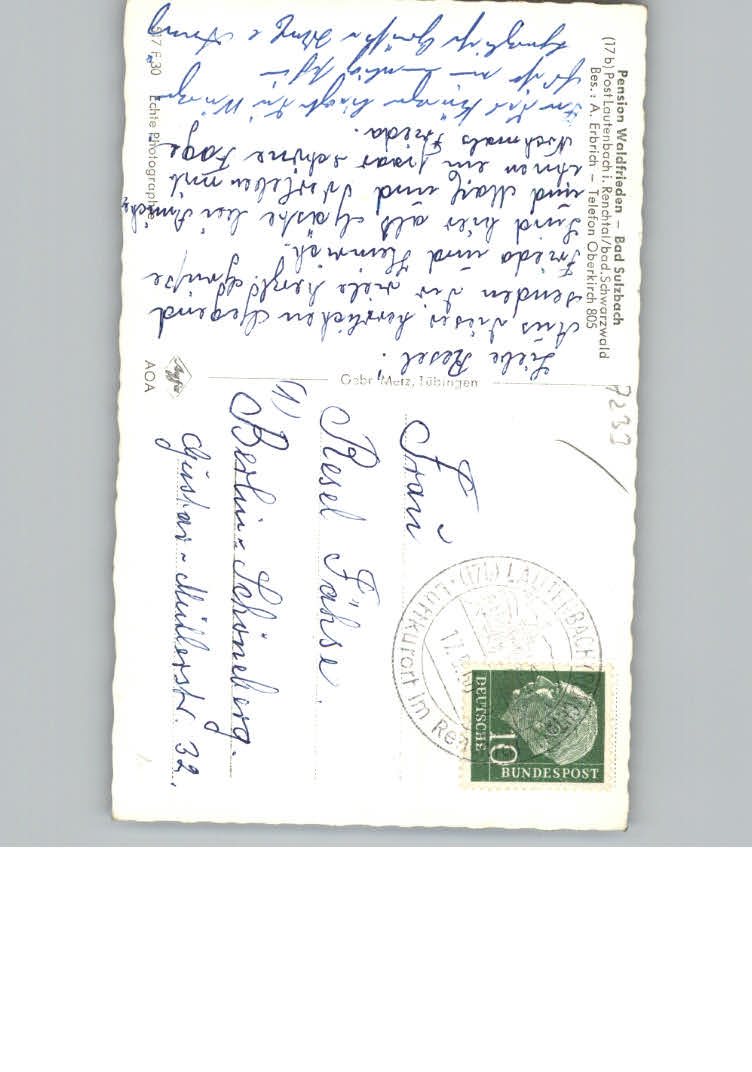 Pension Waldfrieden – Bad Sulzbach
(17 b) Post Lautenbach i. Renchtal/bad. Schwarzwald
Bes.: A. Erbrich – Telefon Oberkirch 805
Liebe Resel,
Aus dieser herrlichen Gegend
senden dir viele herzl. Grüße
Frieda und Heinrich.
Sind hier als Gäste bei Ännchen
und Max und verleben mit
ihnen ein paar schöne Tage
Nochmals Frieda.
517 F 30 Echte Photographie
Gebr. Metz, Tübingen
Agfa
AOA
7233
Frau
Resel Fähse.
(1) Berlin-Schöneberg.
Gustav-Müllerstr. 32.
(17b) LAUTENBACH
Luftkurort im
DEUTSCHE
BUNDESPOST
10